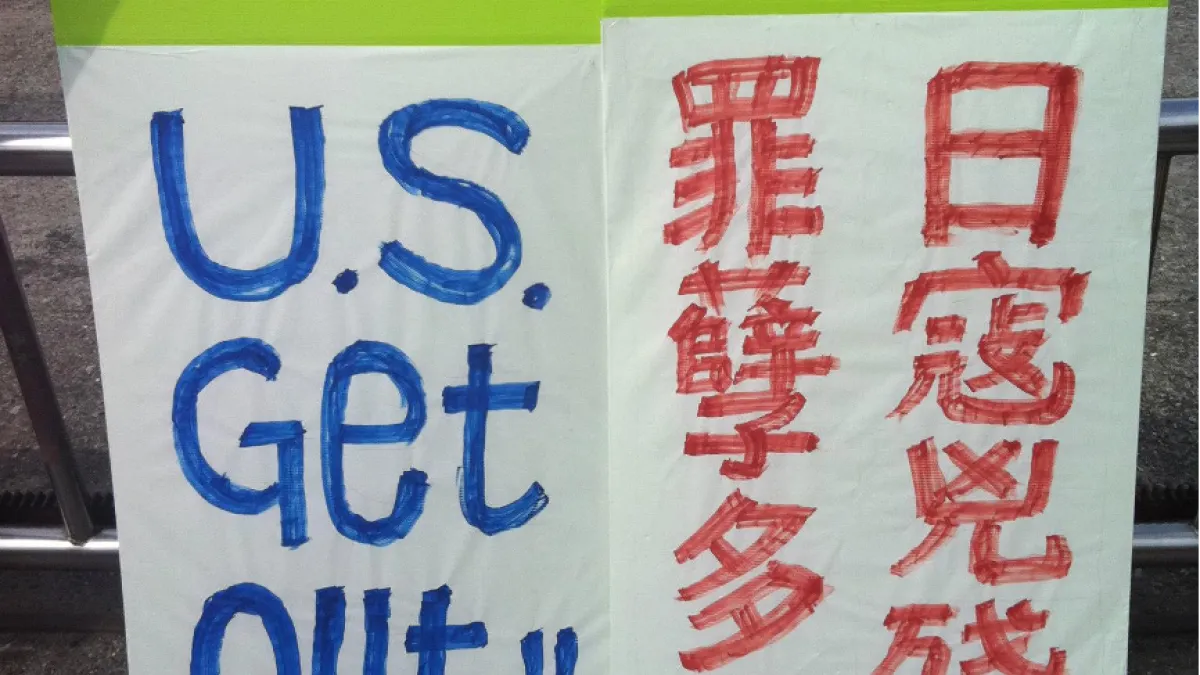 U.S.
Get
Out!!
日寇兇殘
罪孽多